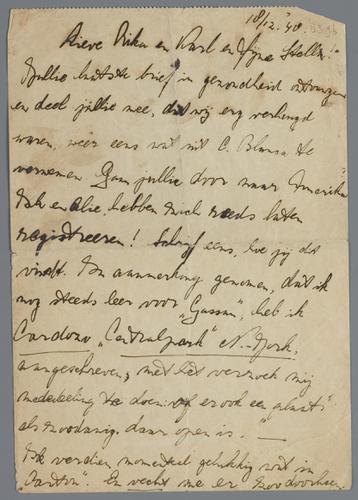 18/12.'40.
Lieve Rika en Karl en fijne Stella!
Jullie laatste brief in gezondheid ontvangen
en deel jullie mee, dat wij erg verheugd
waren, weer eens wat uit C. Blanca te
vernemen. Gaan jullie door naar Amerika
Ik en Alie, hebben mich reeds laten
registreeren! Schrijf eens, hoe jij dat
vindt. In aanmerking genomen, dat ik
nog steeds leer voor "Gassan", heb ik
Cardozo "Centralpark" N.-York,
aangeschreven, met het verzoek mij
mededeling te doen: of er ook een plaats
als zoodanig daar open is." —
Ik verdien momenteel gelukkig wat in
Carton. En vecht me er zoo doorheen